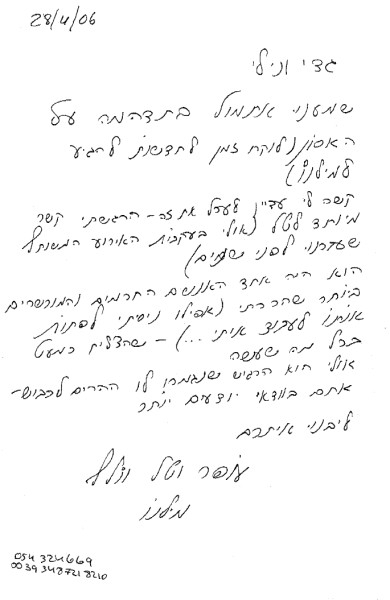 28/4/06
גדי ונילי
שמענו אתמול בתדהמה על
האסון (לוקח זמן לחדשות להגיע
למילנו)
קשה לי עדיין לעכל את זה - הרגשתי קשר
מיוחד לטל (אולי בעקבות האירוע המשותף
שעברנו לפני שנתיים)
הוא היה אחד האנשים החכמים והמוכשרים
ביותר שהכרתי (אפילו ניסיתי לפתות
אותו לעבוד איתי ...) - שהצליח כמעט
בכל מה שעשה
אולי הוא הרגיש שנגמרו לו ההרים לכבוש -
אתם בוודאי יודעים יותר
ליבנו איתכם
עופר וטל
מילנו
054 324669
0039 3487218210